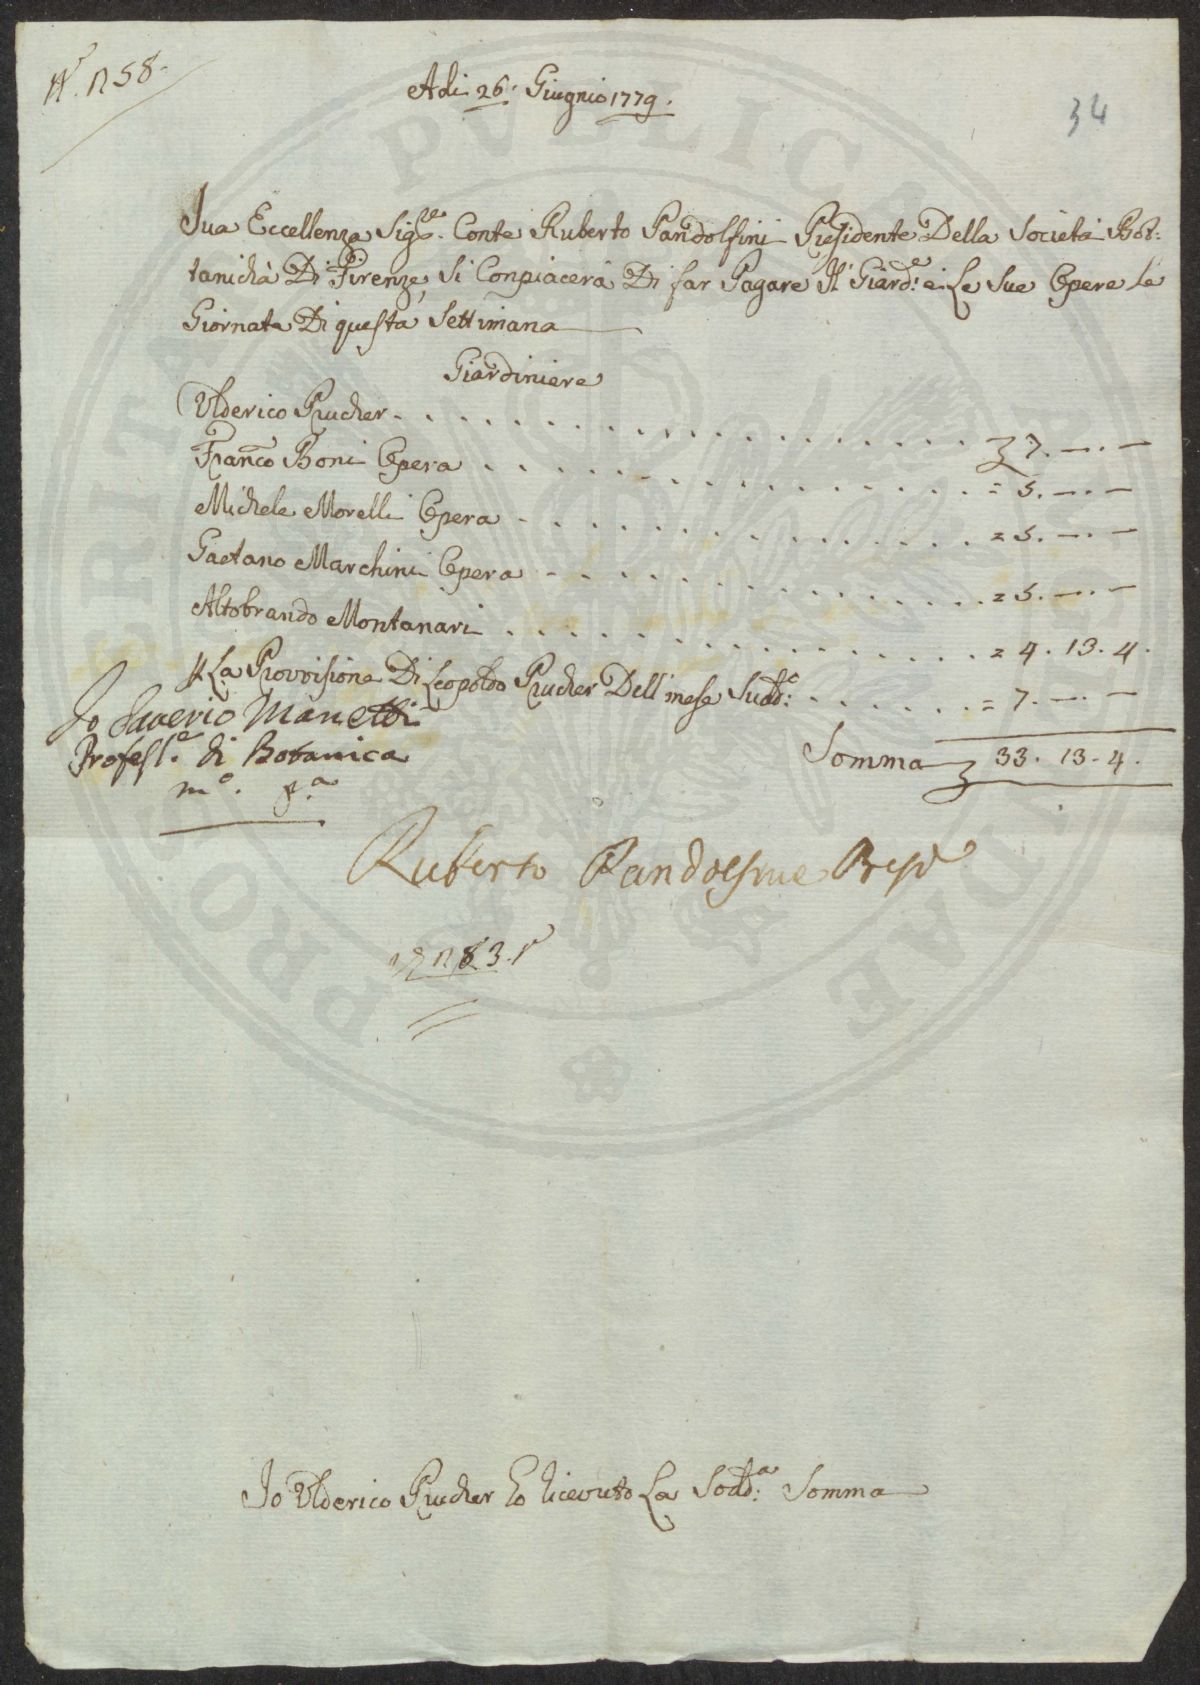 N.º 1258.
Adi 26. Giugnio 1779.
34
Sua Eccellenza Sig.re Conte Ruberto Pandolfini Presidente Della Società Bot:
tanicha Di Firenze, Si Conpiacerà Di far Pagare Il Giard.e e Le Sue Opere Le
Giornate Di questa Settimana
Giardiniere
Ulderico Prucher . . . . . . . . . . . . . . . . . . 7. —. —
Franco Boni Opera . . . . . . . . . . . . . . . = 5. —. —
Michele Morelli Opera . . . . . . . . . . . . . . = 5. —. —
Gaetano Marchini Opera . . . . . . . . . . . . . = 5. —. —
Altobrando Montanari . . . . . . . . . . . . . . = 4. 13. 4.
La Provisione Di Leopoldo Prucher Dell'mese Sudd:o . . . . . . . = 7. —. —
Somma 33. 13. 4.
Io Saverio Manetti
Profess.e di Botanica
m.o p.a
Ruberto Pandolfini Presid
1283.
Io Ulderico Prucher ho ricevuto La Sodd:a Somma
PROPRIETAS PVBLICA